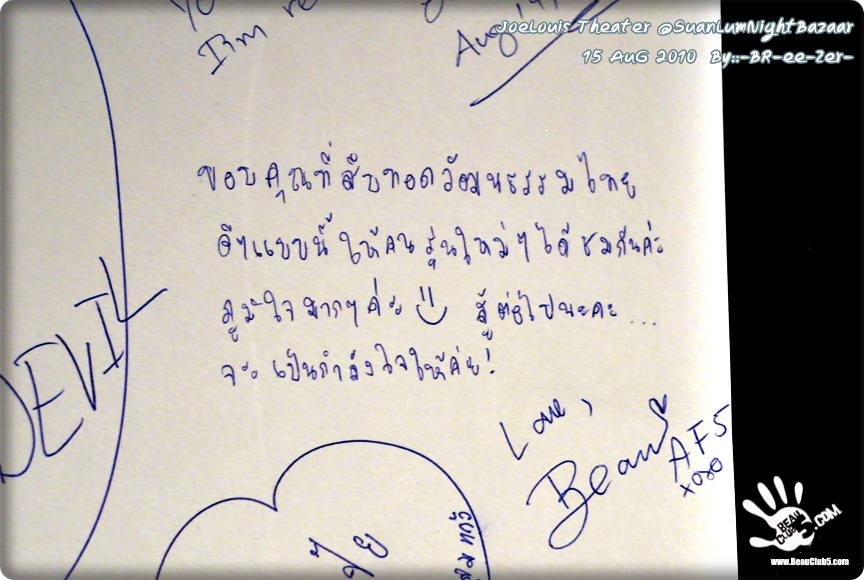 JoeLouis Theater @SuanLumNightBazaar
15 AuG 2010 By::-BR-ee-Zer-
ขอบคุณที่สืบทอดวัฒนธรรมไทย
ดีๆแบบนี้ให้คนรุ่นใหม่ๆได้ชมกันค่ะ
ภูมิใจมากๆค่ะ สู้ต่อไปนะคะ...
จะเป็นกำลังใจให้ค่ะ!
Love,
Beau
AF5
xoxo
DEVIL
BEAU CLUB5.COM
www.BeauClub5.com